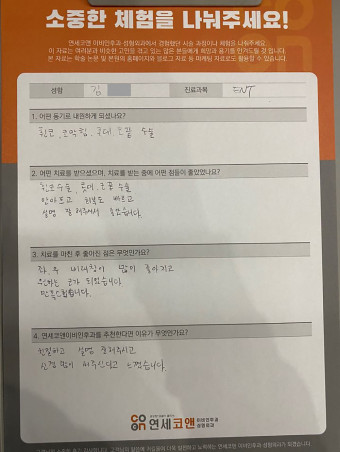 소중한 체험을 나눠주세요!
연세코앤 이비인후과·성형외과에서 경험했던 시술 과정이나 체험을 나눠주세요.
이 자료는 여러분과 비슷한 고민을 겪고 있는 많은 분들에게 희망과 용기를 안겨드릴 것 입니다.
본 자료는 학술 논문 및 본원의 홈페이지와 블로그 자료 등 마케팅 자료로도 활용할 수 있습니다.
성명 김 진료과목 ENT
1. 어떤 동기로 내원하게 되셨나요?
휜코, 코막힘, 콧대, 코끝 수술
2. 어떤 치료를 받으셨으며, 치료를 받는 중에 어떤 점들이 좋았었나요?
휜코수술, 콧대, 코끝 수술
안아프고 회복도 빠르고
설명 잘 해주셔서 좋았습니다.
3. 치료를 마친 후 좋아진 점은 무엇인가요?
좌, 우 비대칭이 많이 좋아지고
원하는 코가 되었습니다
만족스럽습니다.
4. 연세코앤이비인후과를 추천한다면 이유가 무엇인가요?
친절하고 설명 잘해주시고,
신경 많이 써주신다고 느꼈습니다.
CO
ON 연세코앤 이비인후과
성형외과